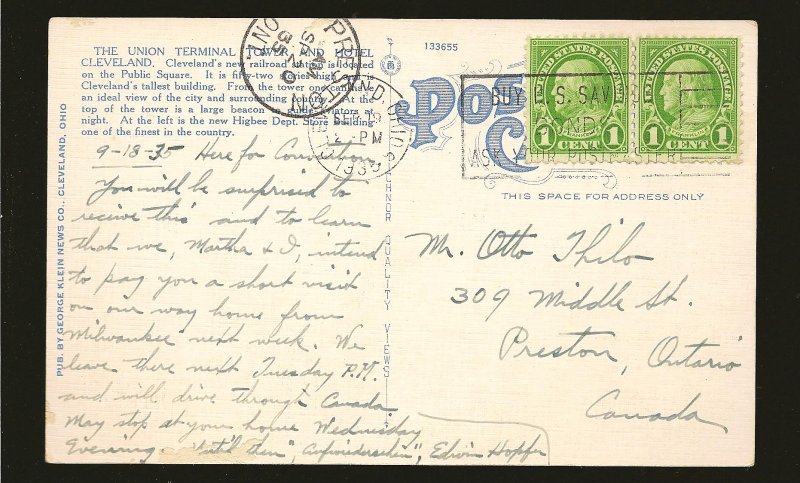 THE UNION TERMINAL TOWER AND HOTEL
CLEVELAND. Cleveland's new railroad station is located
on the Public Square. It is fifty-two stories high and
Cleveland's tallest building. From the tower one can have
an ideal view of the city and surrounding country. At the
top of the tower is a large beacon guide aviators
night. At the left is the new Higbee Dept. Store building
one of the finest in the country.
133655
PUB. BY GEORGE KLEIN NEWS CO., CLEVELAND, OHIO
SCHNOR QUALITY VIEWS
PRESTON
ONT.
SP 20
35
CLEVELAND, OHIO
SEP 19
2 - PM
1935
BUY U.S. SAV
BONDS
ASK YOUR POSTMASTER
UNITED STATES POSTAGE
1 CENT 1
UNITED STATES POSTAGE
1 CENT 1
THIS SPACE FOR ADDRESS ONLY
9-18-35 Here for Convention
You will be surprised to
receive this and to learn
that we, Martha & I, intend
to pay you a short visit
on our way home from
Milwaukee next week. We
leave there next Tuesday P.M.
and will drive through Canada.
May stop at your home Wednesday
Evening. "Until then", "Aufwiedersehen", Edwin Hopf
Mr. Otto Thilo
309 Middle St.
Preston, Ontario
Canada